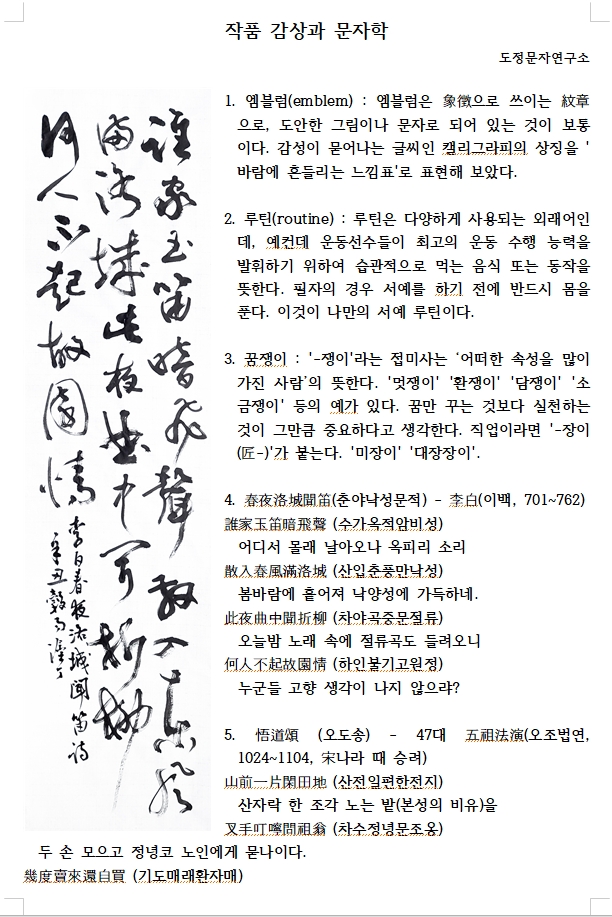 작품 감상과 문자학
도정문자연구소
誰家玉笛暗飛聲散入春風
滿洛城此夜曲中聞折柳
何人不起故園情
李白春夜洛城聞笛詩
辛丑穀雨
1. 엠블럼(emblem) : 엠블럼은 象徵으로 쓰이는 紋章
으로, 도안한 그림이나 문자로 되어 있는 것이 보통
이다. 감성이 묻어나는 글씨인 캘리그라피의 상징을 '
바람에 흔들리는 느낌표'로 표현해 보았다.
2. 루틴(routine) : 루틴은 다양하게 사용되는 외래어인
데, 예컨데 운동선수들이 최고의 운동 수행 능력을
발휘하기 위하여 습관적으로 먹는 음식 또는 동작을
뜻한다. 필자의 경우 서예를 하기 전에 반드시 몸을
푼다. 이것이 나만의 서예 루틴이다.
3. 꿈쟁이 : '-쟁이'라는 접미사는 ‘어떠한 속성을 많이
가진 사람’의 뜻한다. '멋쟁이' '환쟁이' '담쟁이' '소
금쟁이' 등의 예가 있다. 꿈만 꾸는 것보다 실천하는
것이 그만큼 중요하다고 생각한다. 직업이라면 '-장이
(匠-)'가 붙는다. '미장이' '대장장이'.
4. 春夜洛城聞笛(춘야낙성문적) - 李白(이백, 701~762)
誰家玉笛暗飛聲 (수가옥적암비성)
어디서 몰래 날아오나 옥피리 소리
散入春風滿洛城 (산입춘풍만낙성)
봄바람에 흩어져 낙양성에 가득하네.
此夜曲中間折柳 (차야곡중문절류)
오늘밤 노래 속에 절류곡도 들려오니
何人不起故園情 (하인불기고원정)
누군들 고향 생각이 나지 않으랴?
5. 悟道頌 (오도송) - 47대 五祖法演(오조법연,
1024~1104, 宋나라 때 승려)
山前一片閑田地 (산전일편한전지)
산자락 한 조각 노는 밭(본성의 비유)을
叉手叮嚀問祖翁 (차수정녕문조옹)
두 손 모으고 정녕코 노인에게 묻나이다.
幾度賣來還自買 (기도매래환자매)